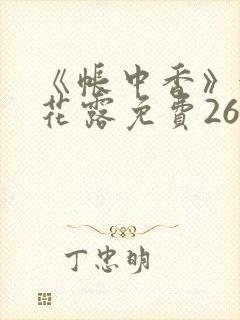 《帐中香》
花露免費26
丁忠明